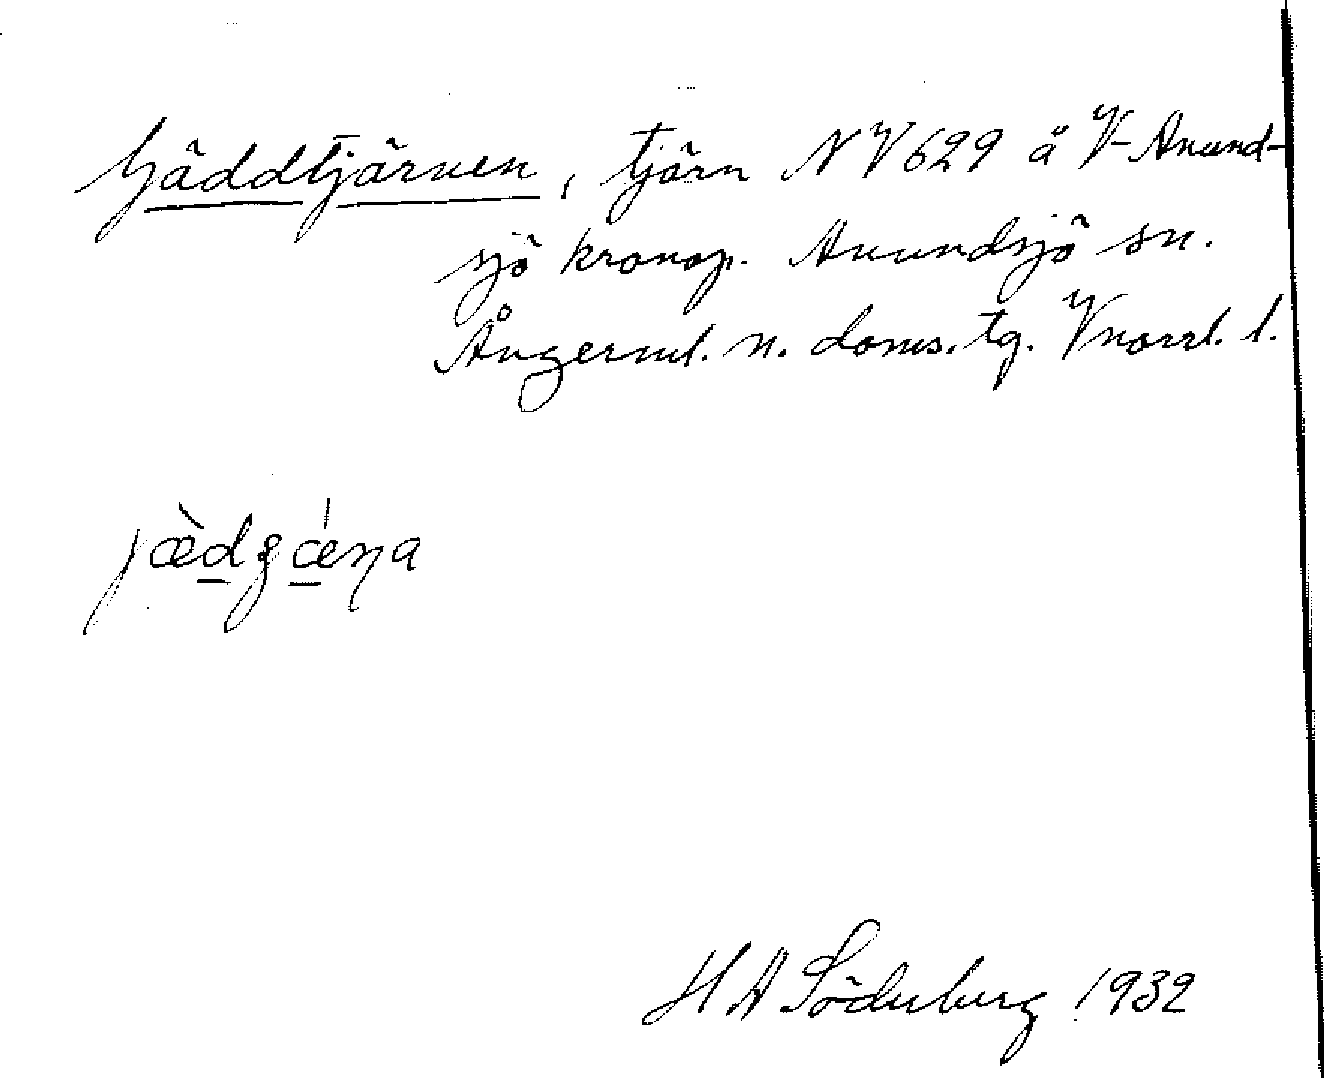 Gäddtjärnen, tjärn NV 629 å V-Anund-
sjö kronop. Anundsjö sn.
Ångerml. n. doms. tg. Vnorrl. l.
H A Söderberg 1932